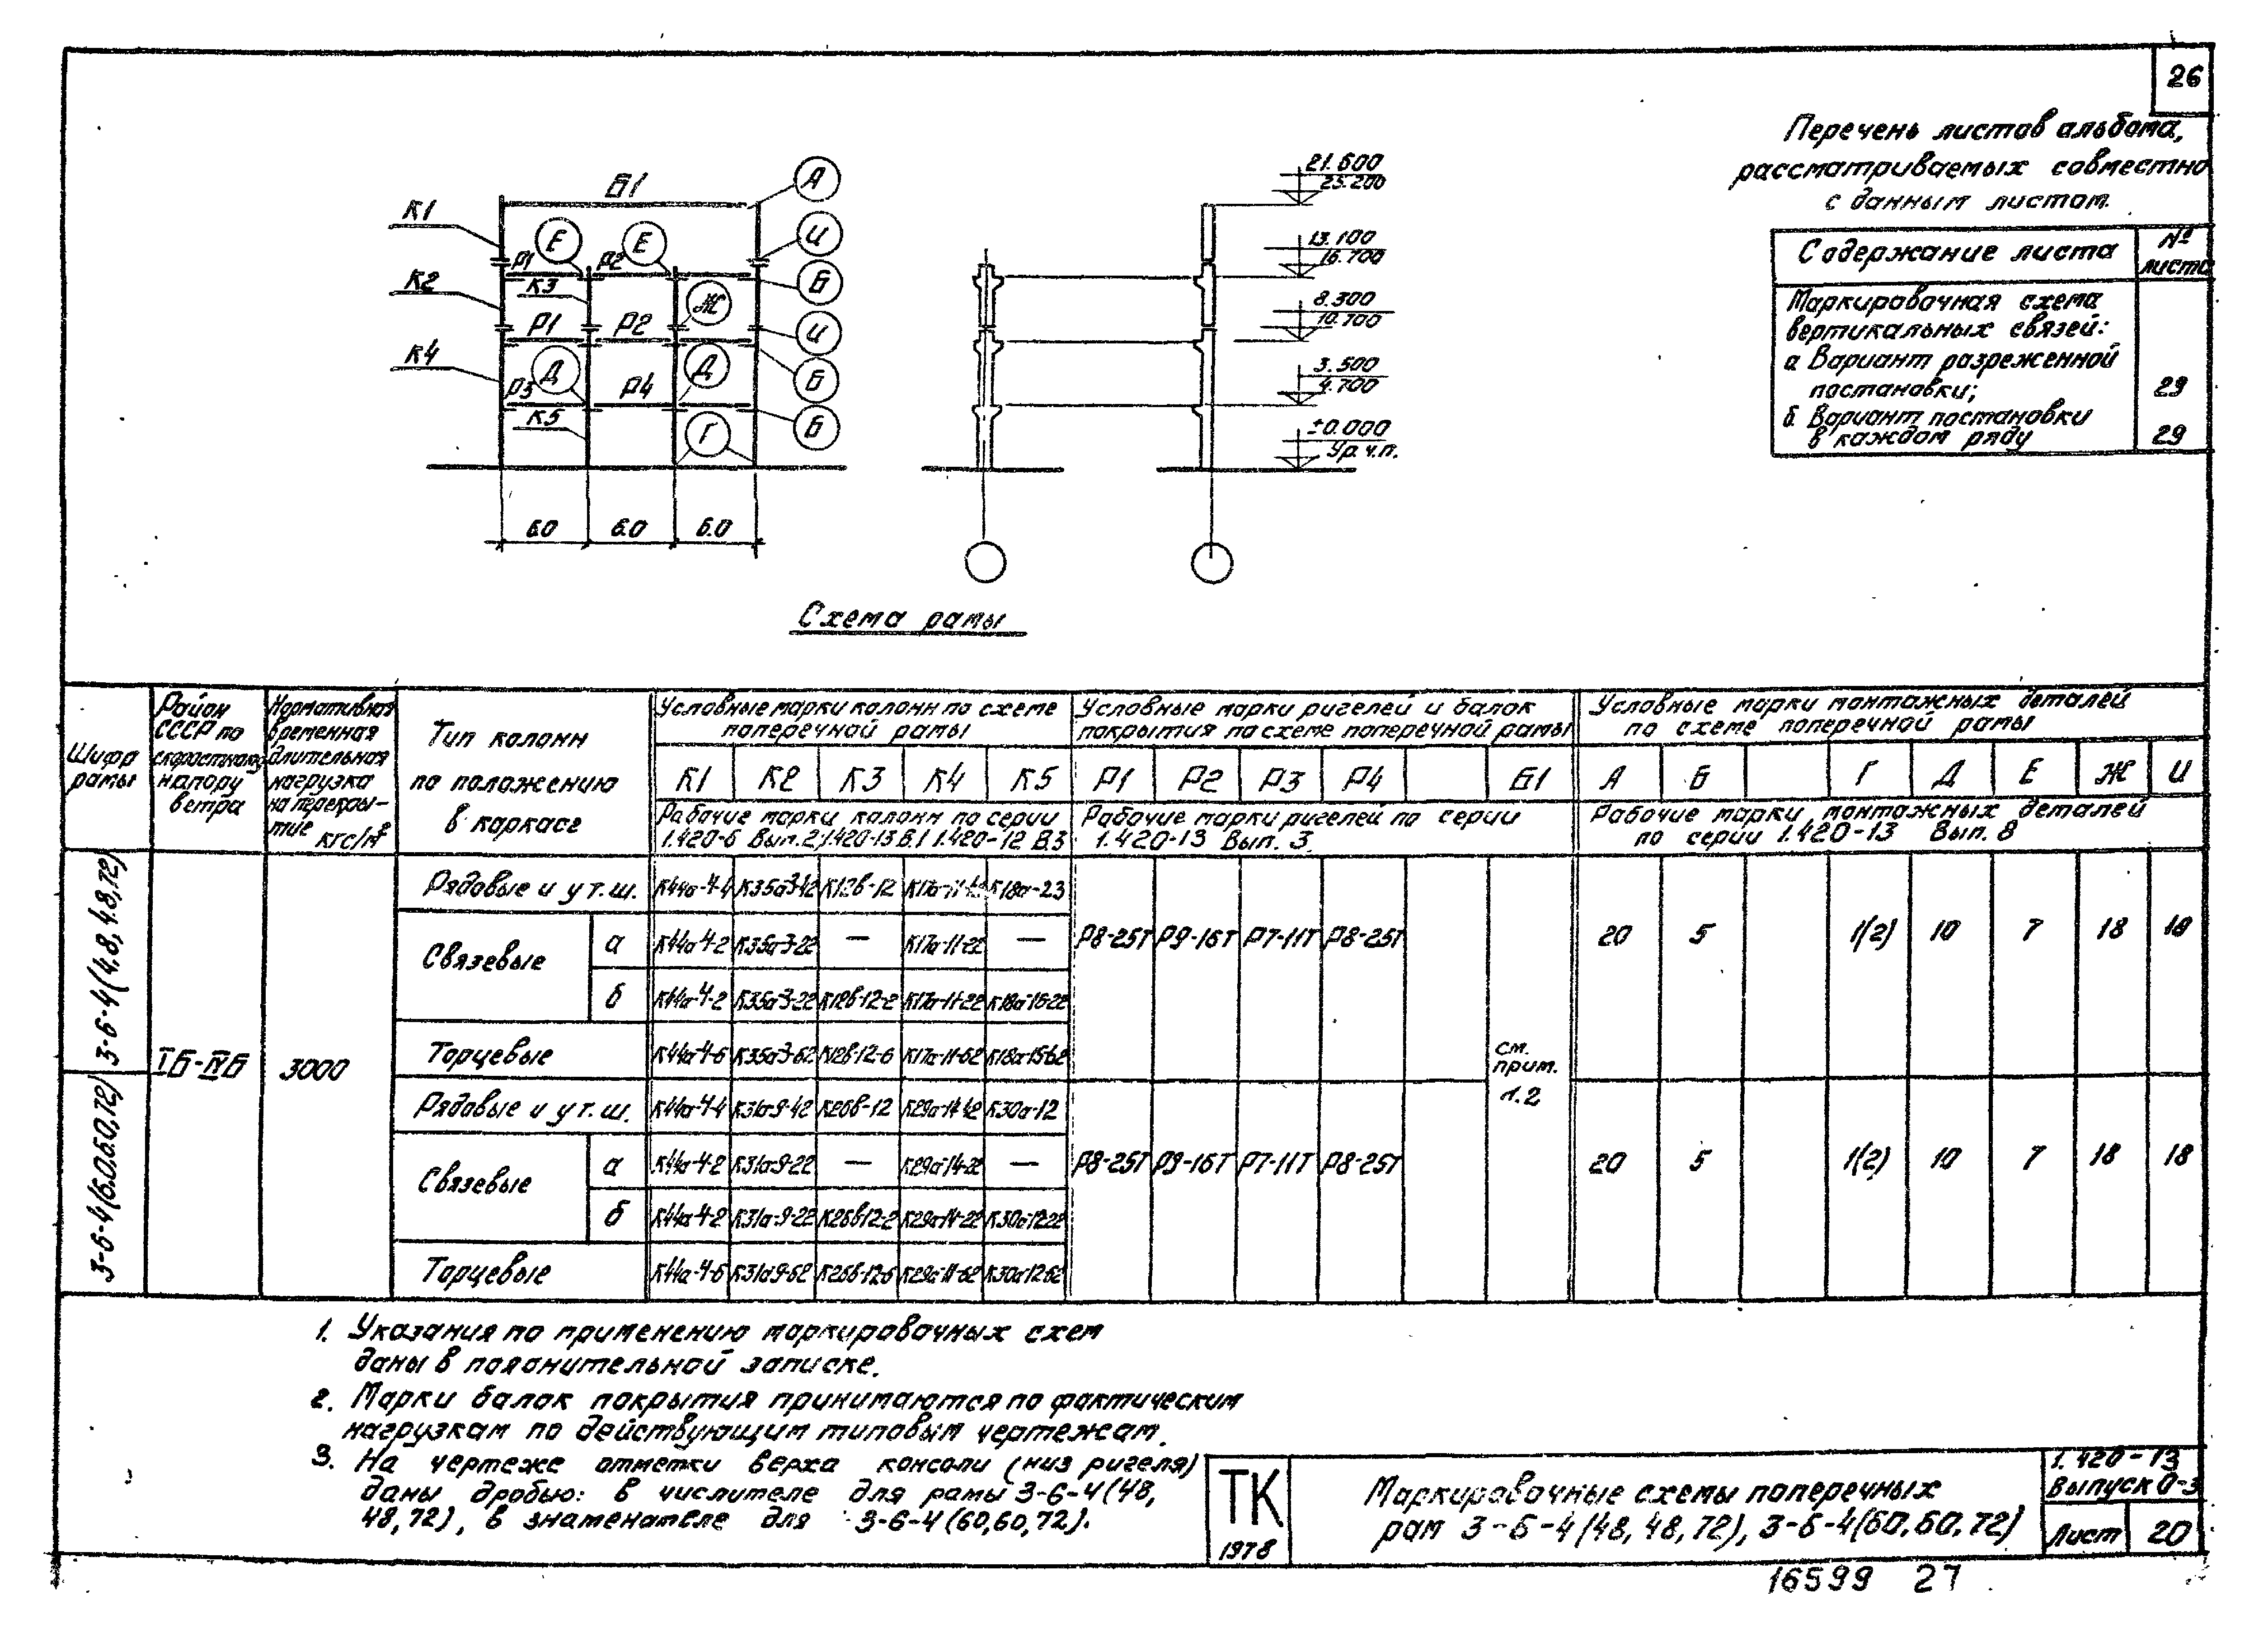 26
Перечень листов альбома,
рассматриваемых совместно
с данным листом.
Содержание листа
№
листа
Маркировочная схема
вертикальных связей:
а Вариант разреженной
постановки;
29
б. Вариант постановки
в каждом ряду
29
Б1
А
К1
Е
Е
И
Р1
Р2
К2
К3
Ж
Б
Р1
Р2
И
К4
Д
Д
Р3
Р4
Б
К5
Г
Б
6.0
6.0
6.0
21.600
25.200
13.100
16.700
8.300
10.700
3.500
4.700
±0.000
Ур.ч.п.
Схема рамы
Шифр
рамы
Район
СССР по
скоростному
напору
ветра
Нормативная
временная
длительная
нагрузка
на перекры-
тие кгс/м²
Тип колонн
по положению
в каркасе
Условные марки колонн по схеме
поперечной рамы
К1 К2 К3 К4 К5
Рабочие марки колонн по серии
1.420-6 Вып.2; 1.420-13 В.1 1.420-12 В.3
Условные марки ригелей и балок
покрытия по схеме поперечной рамы
Р1 Р2 Р3 Р4 Б1
Рабочие марки ригелей по серии
1.420-13 Вып. 3
Условные марки монтажных деталей
по схеме поперечной рамы
А Б Г Д Е Ж И
Рабочие марки монтажных деталей
по серии 1.420-13 Вып. 8
3-6-4(4.8,4.8,7.2)
3-6-4(6.0,6.0,7.2)
IБ-IVБ
3000
Рядовые и у т.ш. К44а-4-4 К35а-3-42 К12в-12 К17а-11-42 К18а-23
Связевые
а К44а-4-2 К35а-3-22 — К17а-11-22 —
б К44а-4-2 К35а-3-22 К12в-12-2 К17а-11-22 К18а-15-22
Торцевые К44а-4-6 К35а-3-62 К12в-12-6 К17а-11-62 К18а-15-62
Р8-25Т Р9-16Т Р7-11Т Р8-25Т
20 5 1(2) 10 7 18 18
см.
прим.
1.2
Рядовые и у т.ш. К44а-4-4 К31а-9-42 К26в-12 К29а-14-42 К30а-12
Связевые
а К44а-4-2 К31а-9-22 — К29а-14-22 —
б К44а-4-2 К31а-9-22 К26в-12-2 К29а-14-22 К30а-12-22
Торцевые К44а-4-6 К31а-9-62 К26в-12-6 К29а-14-62 К30а-12-62
Р8-25Т Р9-16Т Р7-11Т Р8-25Т
20 5 1(2) 10 7 18 18
1. Указания по применению маркировочных схем
даны в пояснительной записке.
2. Марки балок покрытия принимаются по фактическим
нагрузкам по действующим типовым чертежам.
3. На чертеже отметки верха консоли (низ ригеля)
даны дробью: в числителе для рамы 3-6-4(48,
48,72), в знаменателе для 3-6-4(60,60,72).
ТК
1978
Маркировочные схемы поперечных
рам 3-6-4(48,48,72), 3-6-4(60,60,72)
1.420-13
Выпуск 0-3
Лист 20
16599 27